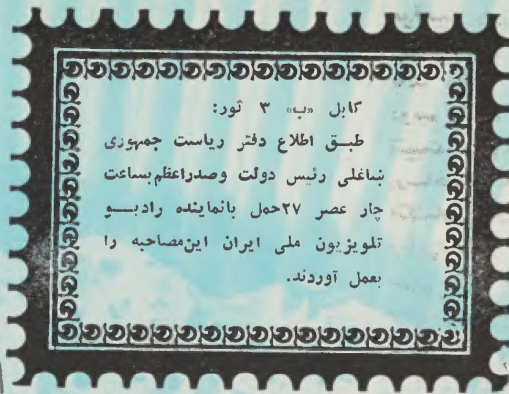 کابل «ب» ۳ ثور:
طبق اطلاع دفتر ریاست جمهوری
ښاغلی رئیس دولت وصدراعظم بساعت
چار عصر ۲۷حمل بانماینده رادیو
تلویزیون ملی ایران این‌مصاحبه را
بعمل آوردند.